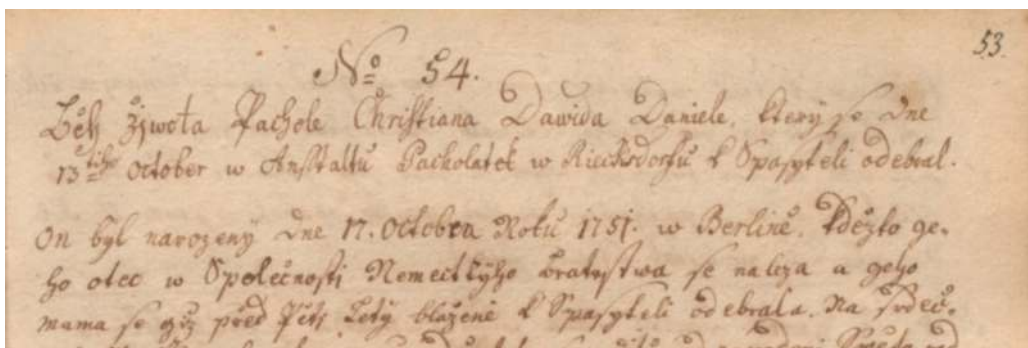 53.
No 54.
Běh žiwota Pachole Christiana Dawida Daniele, kterÿ se dne
13tiho October w Anstaltu Pacholatek w Riecksdorfu k Spasyteli odebral.
On byl narozenÿ dne 17. Octobra Roku 1751. w Berlině, kdežto ge-
ho otec w Společnosti Nemeckÿho bratrstwa se naleza a geho
mama se giž před Pěti Letÿ blaženě k Spasyteli odebrala. Na srdeč-